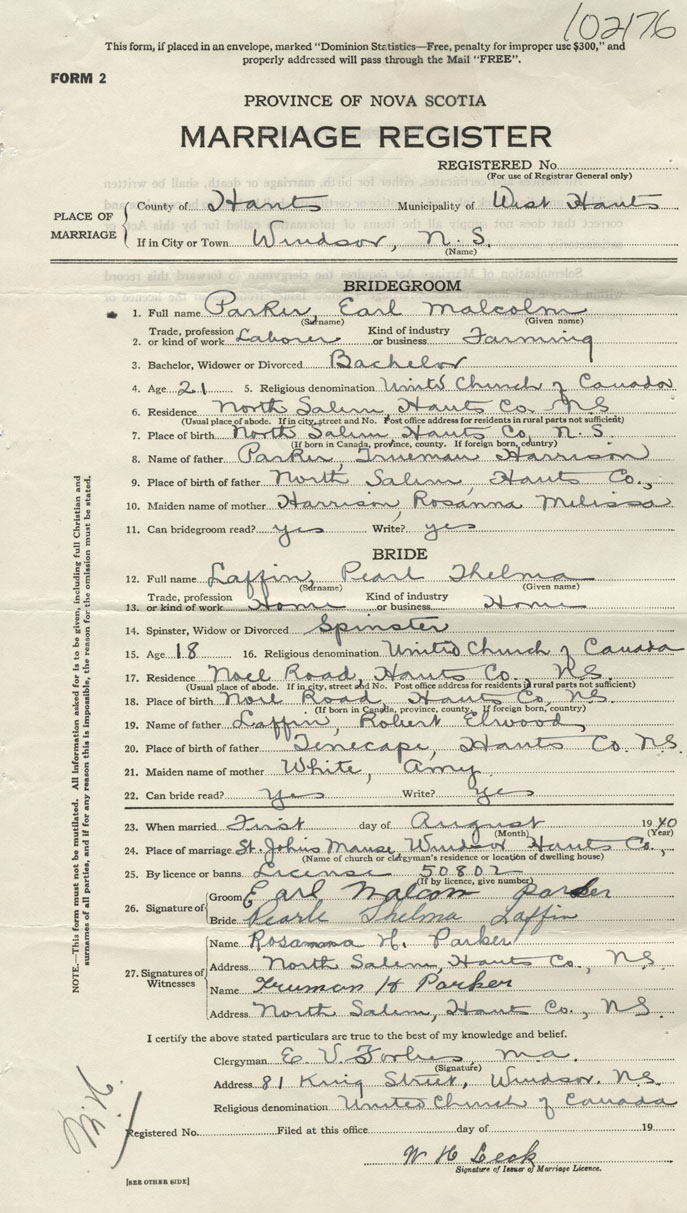 102176
This form, if placed in an envelope, marked "Dominion Statistics—Free, penalty for improper use $300," and
properly addressed will pass through the Mail "FREE".
FORM 2
PROVINCE OF NOVA SCOTIA
MARRIAGE REGISTER
REGISTERED No.
(For use of Registrar General only)
PLACE OF MARRIAGE
County of Hants Municipality of West Hants
If in City or Town Windsor, N. S.
(Name)
BRIDEGROOM
1. Full name Parker, Earl Malcolm
(Surname) (Given name)
2. Trade, profession or kind of work Laborer Kind of industry or business Farming
3. Bachelor, Widower or Divorced Bachelor
4. Age 21 5. Religious denomination United Church of Canada
6. Residence North Salem, Hants Co. N S
(Usual place of abode. If in city, street and No. Post office address for residents in rural parts not sufficient)
7. Place of birth North Salem Hants Co, N. S.
(If born in Canada, province, county. If foreign born, country)
8. Name of father Parker, Trueman Harrison
9. Place of birth of father North Salem, Hants Co.,
10. Maiden name of mother Harrison, Rosanna Melissa
11. Can bridegroom read? yes Write? yes
BRIDE
12. Full name Laffin, Pearl Thelma
(Surname) (Given name)
13. Trade, profession or kind of work Home Kind of industry or business Home
14. Spinster, Widow or Divorced Spinster
15. Age 18 16. Religious denomination United Church of Canada
17. Residence Noel Road, Hants Co. N.S.
(Usual place of abode. If in city, street and No. Post office address for residents in rural parts not sufficient)
18. Place of birth Noel Road, Hants Co. N.S.
(If born in Canada, province, county. If foreign born, country)
19. Name of father Laffin, Robert Elwood
20. Place of birth of father Tenecape, Hants Co. N.S.
21. Maiden name of mother White, Amy
22. Can bride read? Yes Write? Yes
23. When married First day of August 1940
(Month) (Year)
24. Place of marriage St. John's Manse, Windsor Hants Co.,
(Name of church or clergyman's residence or location of dwelling house)
25. By licence or banns License 50802
(If by licence, give number)
26. Signature of
Groom Earl Malcom Parker
Bride Pearle Thelma Laffin
27. Signatures of Witnesses
Name Rosamma H. Parker
Address North Salem, Hants Co., N.S.
Name Truman H Parker
Address North Salem, Hants Co., N.S.
I certify the above stated particulars are true to the best of my knowledge and belief.
Clergyman E V Forbes, M.A.
(Signature)
Address 81 King Street, Windsor. N.S.
Religious denomination United Church of Canada
Registered No. Filed at this office day of 19
W H Leck
Signature of Issuer of Marriage Licence.
[SEE OTHER SIDE]
NOTE.—This form must not be mutilated. All information asked for is to be given, including full Christian and
surnames of all parties, and if for any reason this is impossible, the reason for the omission must be stated.